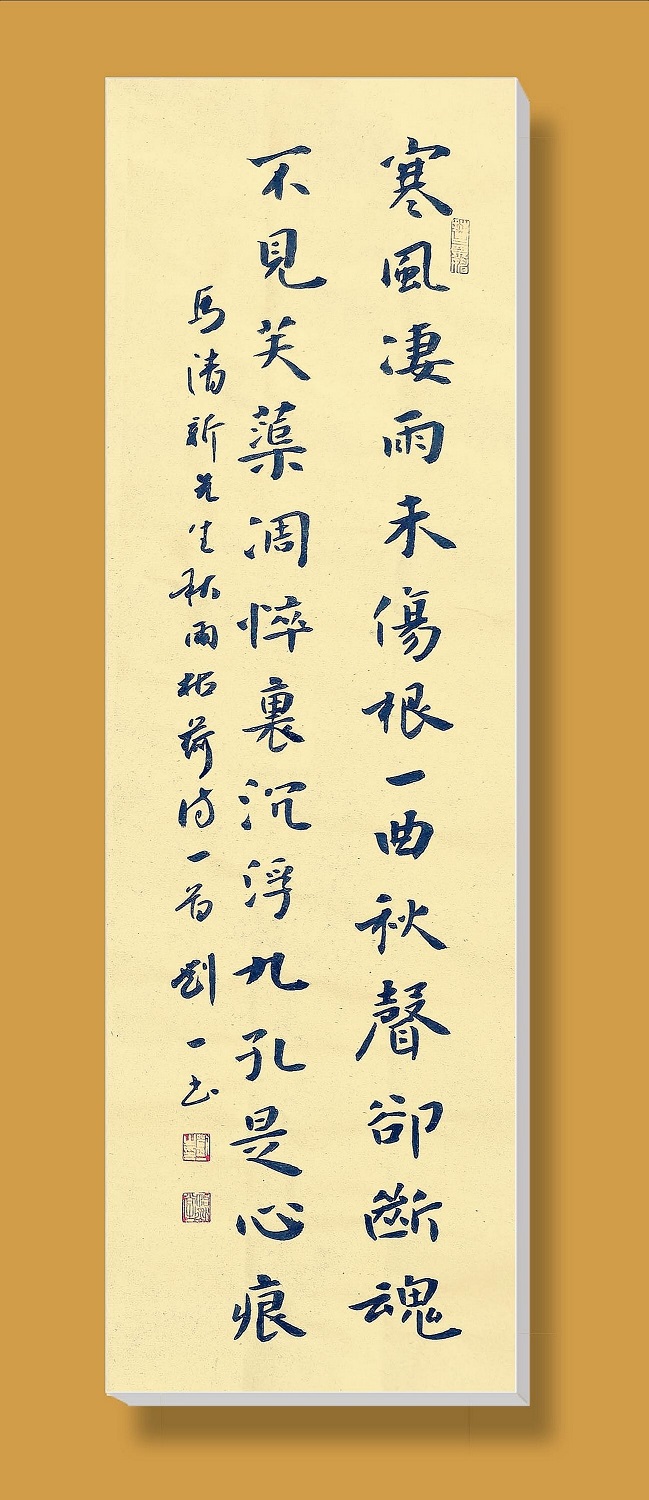 寒風凄雨未傷根一曲秋聲卻斷魂
不見芙蕖凋悴裏沉浮九孔是心痕
馬清新先生秋雨枯荷诗一首劉一书